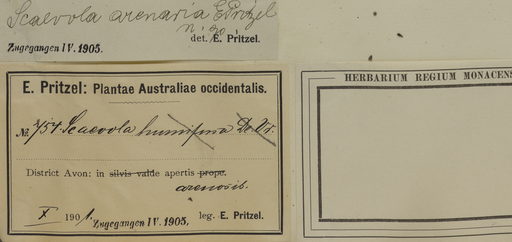 Scaevola arenaria E. Pritzel
n. sp.
det. E. Pritzel.
Zugegangen IV. 1905.
E. Pritzel: Plantae Australiae occidentalis.
HERBARIUM REGIUM MONACENS
№ 754. Scaevola humifusa De Vr.
District Avon: in silvis valde apertis prope.
arenosis.
X 1901. Zugegangen IV. 1905. leg. E. Pritzel.